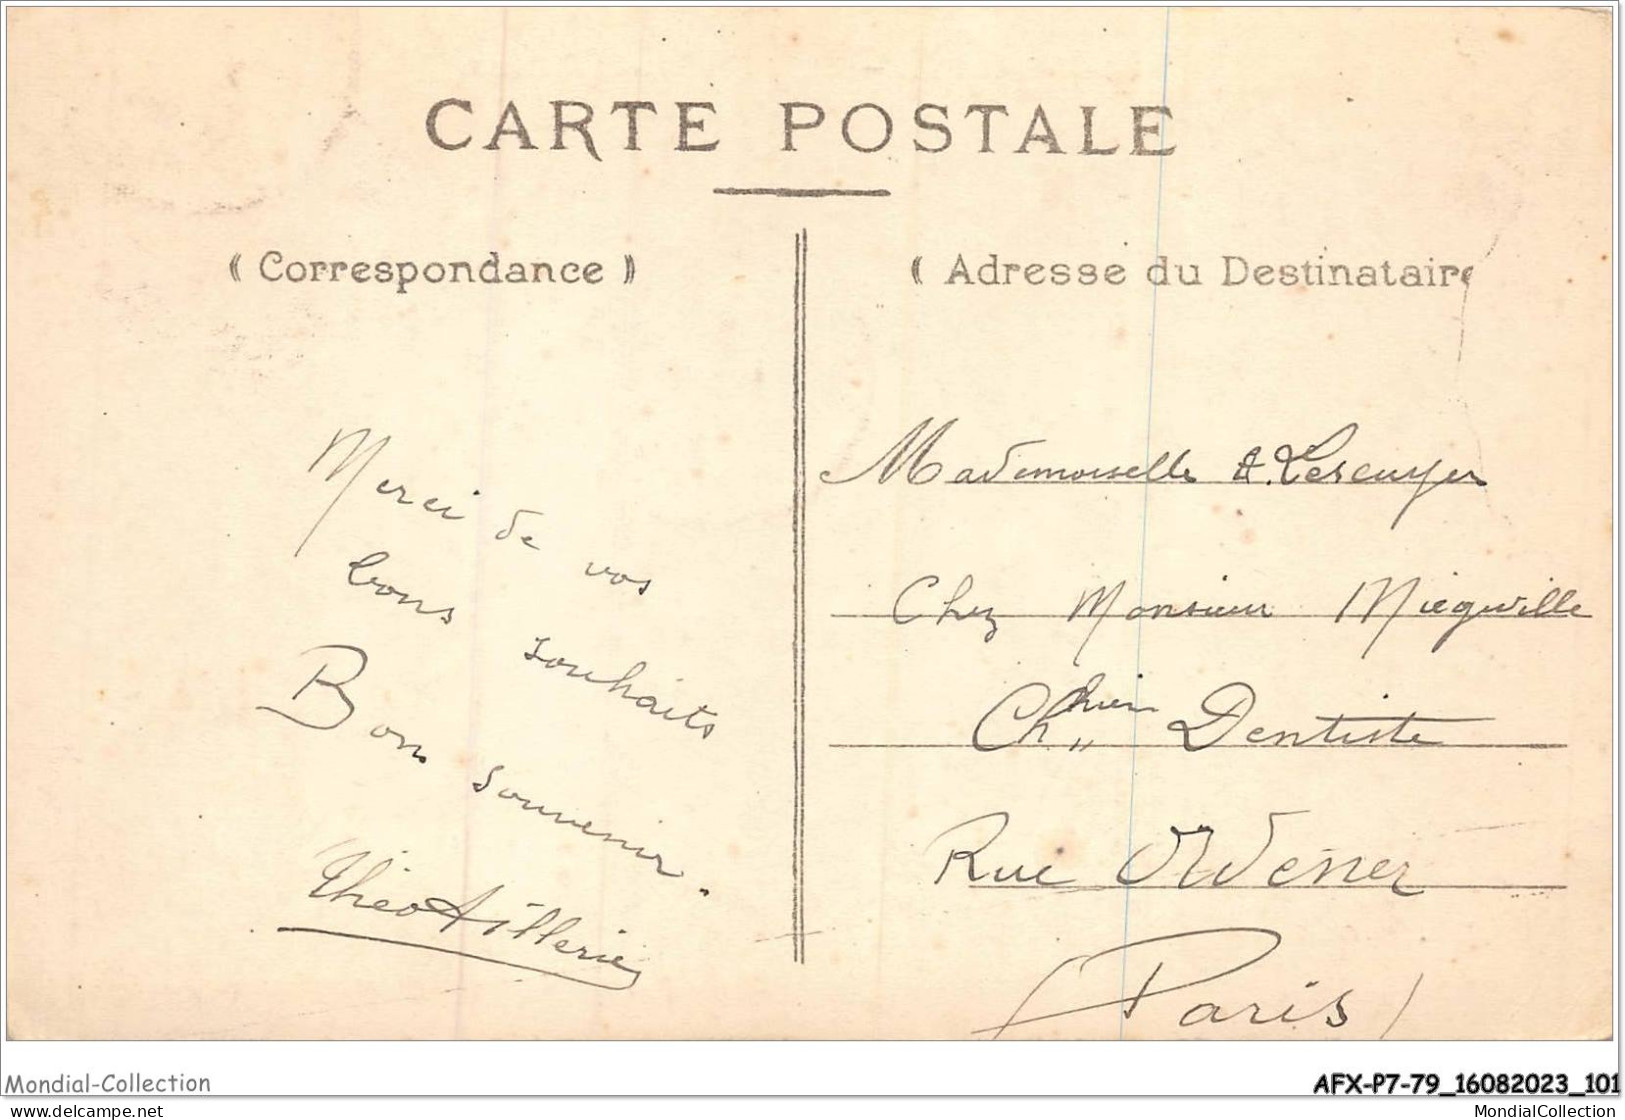 CARTE POSTALE
« Correspondance »
« Adresse du Destinataire
Merci de vos
bons souhaits
Bon souvenir.
Théo Aillerie
Mademoiselle A. Lescuyer
Chez Monsieur Miegeville
Ch Dentiste
Rue Ordener
(Paris)
Mondial-Collection
AFX-P7-79_16082023_101
www.delcampe.net
MondialCollection